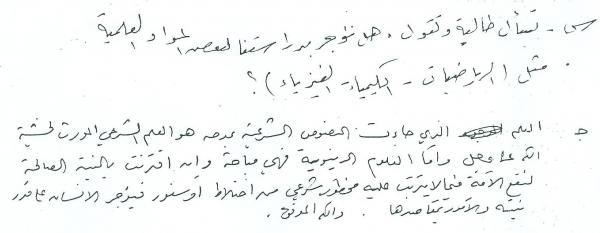 س - تسأل طالبة وتقول، هل نؤجر بدراستنا لبعض المواد العلمية
مثل (الرياضيات - الكيمياء - الفيزياء)؟
ج العلم الذي جاءت النصوص الشرعية بمدحه هو العلم الشرعي المورث لخشية
الله عز وجل وأما العلوم الدنيوية فهي مباحة وان اقترنت بالنية الصالحة
لنفع الأمة فيما لا يترتب عليه محظور شرعي من اختلاط أو سفور فيؤجر الانسان على قدر
نيته والأمور بمقاصدها. والله الموفق.